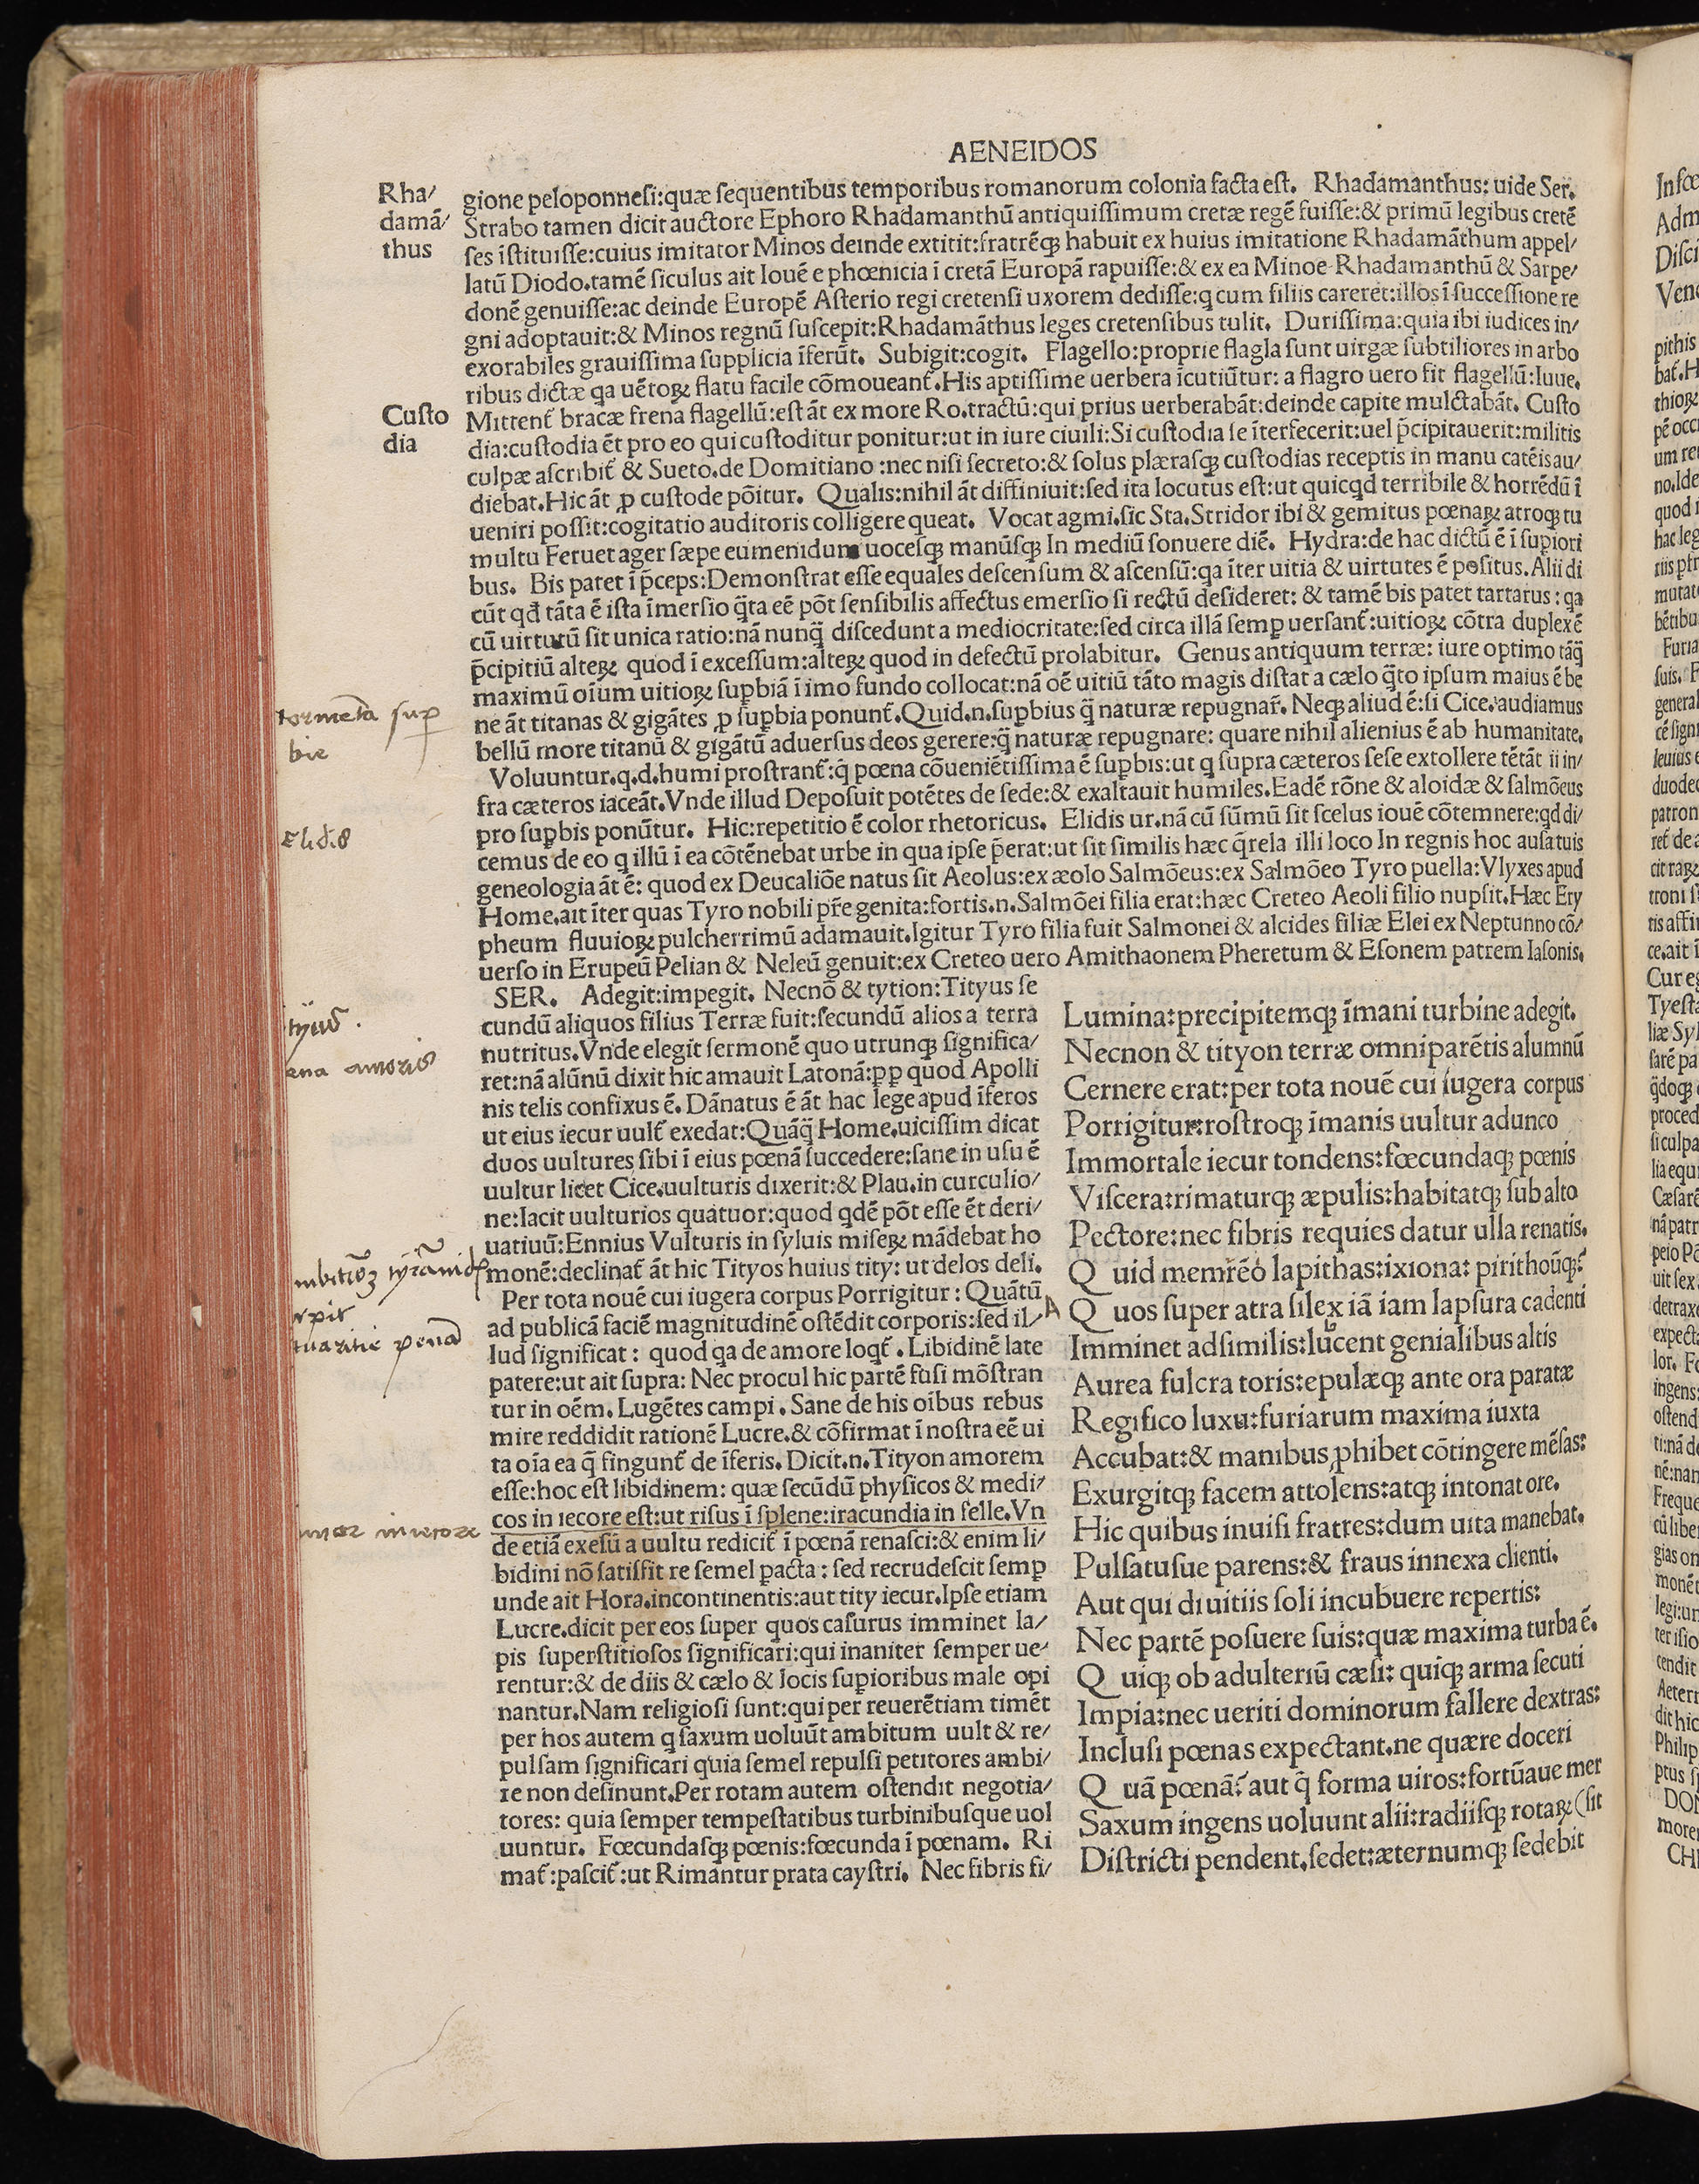 AENEIDOS
Rha/
damā/
thus
gione peloponnesi:quæ ſequentibus temporibus romanorum colonia facta eſt. Rhadamanthus: uide Ser.
Strabo tamen dicit auctore Ephoro Rhadamanthū antiquiſſimum cretæ regē fuiſſe:& primū legibus cretē
ſes īſtituiſſe:cuius imitator Minos deinde extitit:fratrēqꝫ habuit ex huius imitatione Rhadamāthum appel/
latū Diodo.tamē ſiculus ait Iouē e phœnicia ī cretā Europā rapuiſſe:& ex ea Minoe Rhadamanthū & Sarpe/
donē genuiſſe:ac deinde Europē Aſterio regi cretenſi uxorem dediſſe:q cum filiis careret:illos ī ſucceſſione re
gni adoptauit:& Minos regnū ſuſcepit:Rhadamāthus leges cretenſibus tulit. Duriſſima:quia ibi iudices in/
exorabiles grauiſſima ſupplicia īferūt. Subigit:cogit. Flagello:proprie flagla ſunt uirgæ ſubtiliores in arbo
ribus dictæ qa uētoꝝ flatu facile cōmoueant̄.His aptiſſime uerbera īcutiūtur: a flagro uero fit flagellū:Iuue.
Custo
dia
Mittent̄ bracæ frena flagellū:eſt āt ex more Ro.tractū:qui prius uerberabāt:deinde capite mulctabāt. Cuſto
dia:cuſtodia ēt pro eo qui cuſtoditur ponitur:ut in iure ciuili:Si cuſtodia ſe īterfecerit:uel p̄cipitauerit:militis
culpæ aſcribit̄ & Sueto.de Domitiano :nec niſi ſecreto:& ſolus plæraſqꝫ cuſtodias receptis in manu catēis au/
diebat.Hic āt ꝓ cuſtode pōitur. Qualis:nihil āt diffiniuit:ſed ita locutus eſt:ut quicqd terribile & horrēdū ī
ueniri poſſit:cogitatio auditoris colligere queat. Vocat agmi.ſic Sta.Stridor ibi & gemitus pœnaꝝ atroqꝫ tu
multu Feruet ager ſæpe eumenidum uoceſqꝫ manūſqꝫ In mediū ſonuere diē. Hydra:de hac dictū ē ī ſupiori
bus. Bis patet ī p̄ceps:Demonſtrat eſſe equales deſcenſum & aſcenſū:qa īter uitia & uirtutes ē poſitus.Alii di
cūt qd̄ tāta ē iſta īmerſio q̄ta eē pōt ſenſibilis affectus emerſio ſi rectū deſideret: & tamē bis patet tartarus : qa
cū uirtutū ſit unica ratio:nā nunq̄ diſcedunt a mediocritate:ſed circa illā ſemꝑ uerſant̄:uitioꝝ cōtra duplex ē
p̄cipitiū alteꝝ quod ī exceſſum:alteꝝ quod in defectū prolabitur. Genus antiquum terræ: iure optimo tāq̄
maximū oīum uitioꝝ ſuꝑbiā ī imo fundo collocat:nā oē uitiū tāto magis diſtat a cælo q̄to ipſum maius ē be
ne āt titanas & gigātes ꝓ ſuꝑbia ponunt̄.Quid.n.ſuꝑbius q̄ naturæ repugnar̄. Neqꝫ aliud ē:ſi Cice.audiamus
bellū more titanū & gigātū aduerſus deos gerere:q̄ naturæ repugnare: quare nihil alienius ē ab humanitate.
Voluuntur.q.d.humi proſtrant̄:q̄ pœna cōueniētiſſima ē ſuꝑbis:ut q ſupra cæteros ſeſe extollere tētāt ii in/
fra cæteros iaceāt.Vnde illud Depoſuit potētes de ſede:& exaltauit humiles.Eadē rōne & aloidæ & ſalmōeus
pro ſuꝑbis ponūtur. Hic:repetitio ē color rhetoricus. Elidis ur.nā cū ſūmū ſit ſcelus iouē cōtemnere:qd di/
cemus de eo q illū ī ea cōtēnebat urbe in qua ipſe p̄erat:ut ſit ſimilis hæc q̄rela illi loco In regnis hoc auſa tuis
geneologia āt ē: quod ex Deucaliōe natus ſit Aeolus:ex æolo Salmōeus:ex Salmōeo Tyro puella:Vlyxes apud
Home.ait īter quas Tyro nobili pr̄e genita:fortis.n.Salmōei filia erat:hæc Creteo Aeoli filio nupſit.Hæc Ery
pheum fluuioꝝ pulcherrimū adamauit.Igitur Tyro filia fuit Salmonei & alcides filiæ Elei ex Neptunno cō/
uerſo in Erupeū Pelian & Neleū genuit:ex Creteo uero Amithaonem Pheretum & Eſonem patrem Iaſonis.
tormeta sup
bie
SER. Adegit:impegit. Necnō & tytion:Tityus ſe
cundū aliquos filius Terræ fuit:ſecundū alios a terra
nutritus.Vnde elegit ſermonē quo utrunqꝫ ſignifica/
ret:nā alūnū dixit hic amauit Latonā:ꝓꝑ quod Apolli
nis telis confixus ē. Dānatus ē āt hac lege apud īferos
ut eius iecur uult̄ exedat:Quāq̄ Home.uiciſſim dicat
duos uultures ſibi ī eius pœnā ſuccedere:ſane in uſu ē
uultur licet Cice.uulturis dixerit:& Plau.in curculio/
ne:Iacit uulturios quatuor:quod qdē pōt eſſe ēt deri/
uatiuū:Ennius Vulturis in ſyluis miſeꝝ mādebat ho
monē:declinat̄ āt hic Tityos huius tity: ut delos deli.
Per tota nouē cui iugera corpus Porrigitur : Quātū
ad publicā faciē magnitudinē oſtēdit corporis:ſed il/
lud ſignificat : quod qa de amore loqt̄ . Libidinē late
patere:ut ait ſupra: Nec procul hic partē fuſi mōſtran
tur in oēm. Lugētes campi . Sane de his oībus rebus
mire reddidit rationē Lucre.& cōfirmat ī noſtra eē ui
ta oīa ea q̄ fingunt̄ de īferis. Dicit.n.Tityon amorem
eſſe:hoc eſt libidinem: quæ ſecūdū phyſicos & medi/
cos in iecore eſt:ut riſus ī ſplene:iracundia in felle.Vn
de etiā exeſū a uultu redicit̄ ī pœnā renaſci:& enim li/
bidini nō ſatiſfit re ſemel pacta : ſed recrudeſcit ſemꝑ
unde ait Hora.incontinentis:aut tity iecur.Ipſe etiam
Lucre.dicit per eos ſuper quos caſurus imminet la/
pis ſuperſtitioſos ſignificari:qui inaniter ſemper ue/
rentur:& de diis & cælo & locis ſupioribus male opi
nantur.Nam religioſi ſunt:qui per reuerētiam timēt
per hos autem q ſaxum uoluūt ambitum uult & re/
pulſam ſignificari quia ſemel repulſi petitores ambi/
re non deſinunt.Per rotam autem oſtendit negotia/
tores: quia ſemper tempeſtatibus turbinibuſque uol
uuntur. Fœcundaſqꝫ pœnis:fœcunda ī pœnam. Ri
mat̄:paſcit̄:ut Rimantur prata cayſtri. Nec fibris fi/
ena amoris
Lumina:precipitemqꝫ īmani turbine adegit.
Necnon & tityon terræ omniparētis alumnū
Cernere erat:per tota nouē cui iugera corpus
Porrigitur:roſtroqꝫ īmanis uultur adunco
Immortale iecur tondens:fœcundaqꝫ pœnis
Viſcera:rimaturqꝫ æpulis:habitatqꝫ ſub alto
Pectore:nec fibris requies datur ulla renatis.
Q uid memrēō lapithas:ixiona: pirithoūqꝫ?
Q uos ſuper atra ſilex iā iam lapſura cadenti
Imminet adſimilis:lucent genialibus altis
Aurea fulcra toris:epulæqꝫ ante ora paratæ
Regifico luxu:furiarum maxima iuxta
Accubat:& manibus ꝓhibet cōtingere mēſas:
Exurgitqꝫ facem attolens:atqꝫ intonat ore.
Hic quibus inuiſi fratres:dum uita manebat.
Pulſatuſue parens:& fraus innexa clienti.
Aut qui diuitiis ſoli incubuere repertis:
Nec partē poſuere ſuis:quæ maxima turba ē.
Q uiqꝫ ob adulteriū cæſi: quiqꝫ arma ſecuti
Impia:nec ueriti dominorum fallere dextras:
Incluſi pœnas expectant.ne quære doceri
Q uā pœnā? aut q̄ forma uiros:fortūaue mer
Saxum ingens uoluunt alii:radiiſqꝫ rotaꝝ (ſit
Diſtricti pendent.ſedet:æternumqꝫ ſedebit